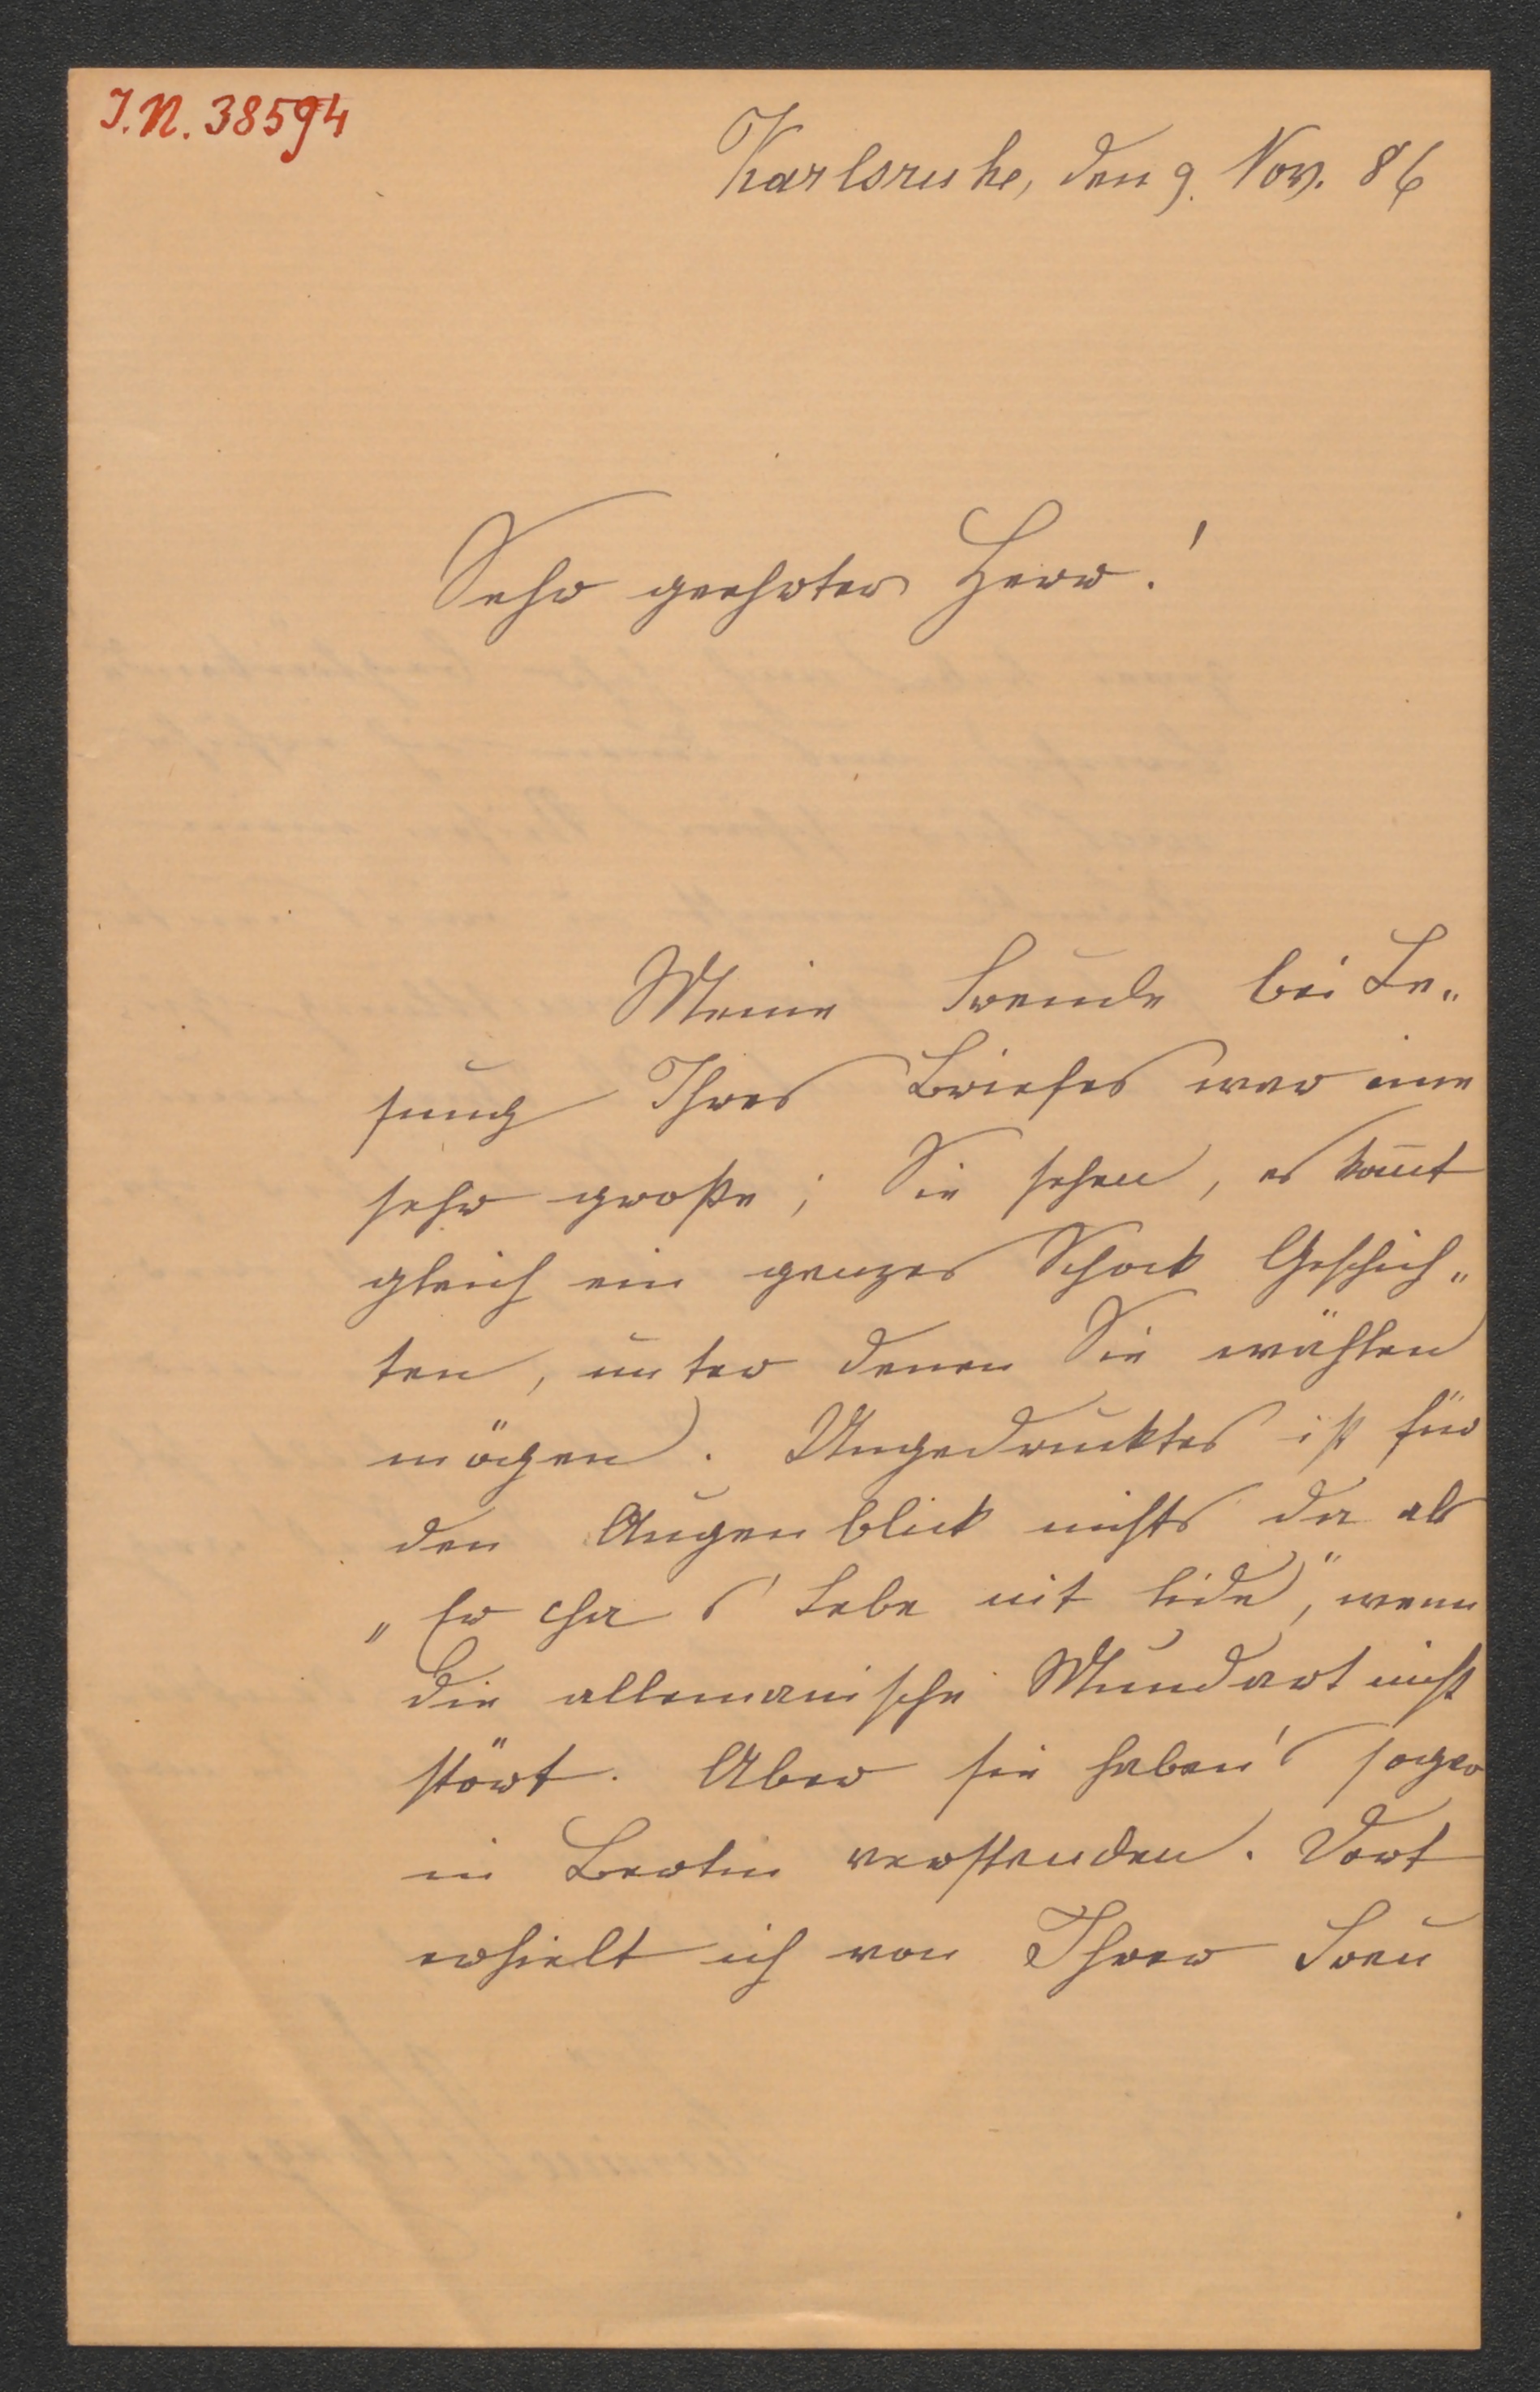 I.N. 38594
Karlsruhe, den 9. Nov. 86
Sehr geehrter Herr!
Meine Freude bei Le„
sung Ihres Briefes war eine
sehr große; Sie sehen, es kom̅t
gleich ein ganzes Schock Geschich„
ten, unter denen Sie wählen
mögen. Ungedrucktes ist für
den Augenblick nichts da als
„Er cha s' Lebe nit lide", wenn
die allemanische Mundart nicht
stört. Aber sie haben's sogar
in Berlin verstanden. Dort
erhielt ich von Ihrer Frau